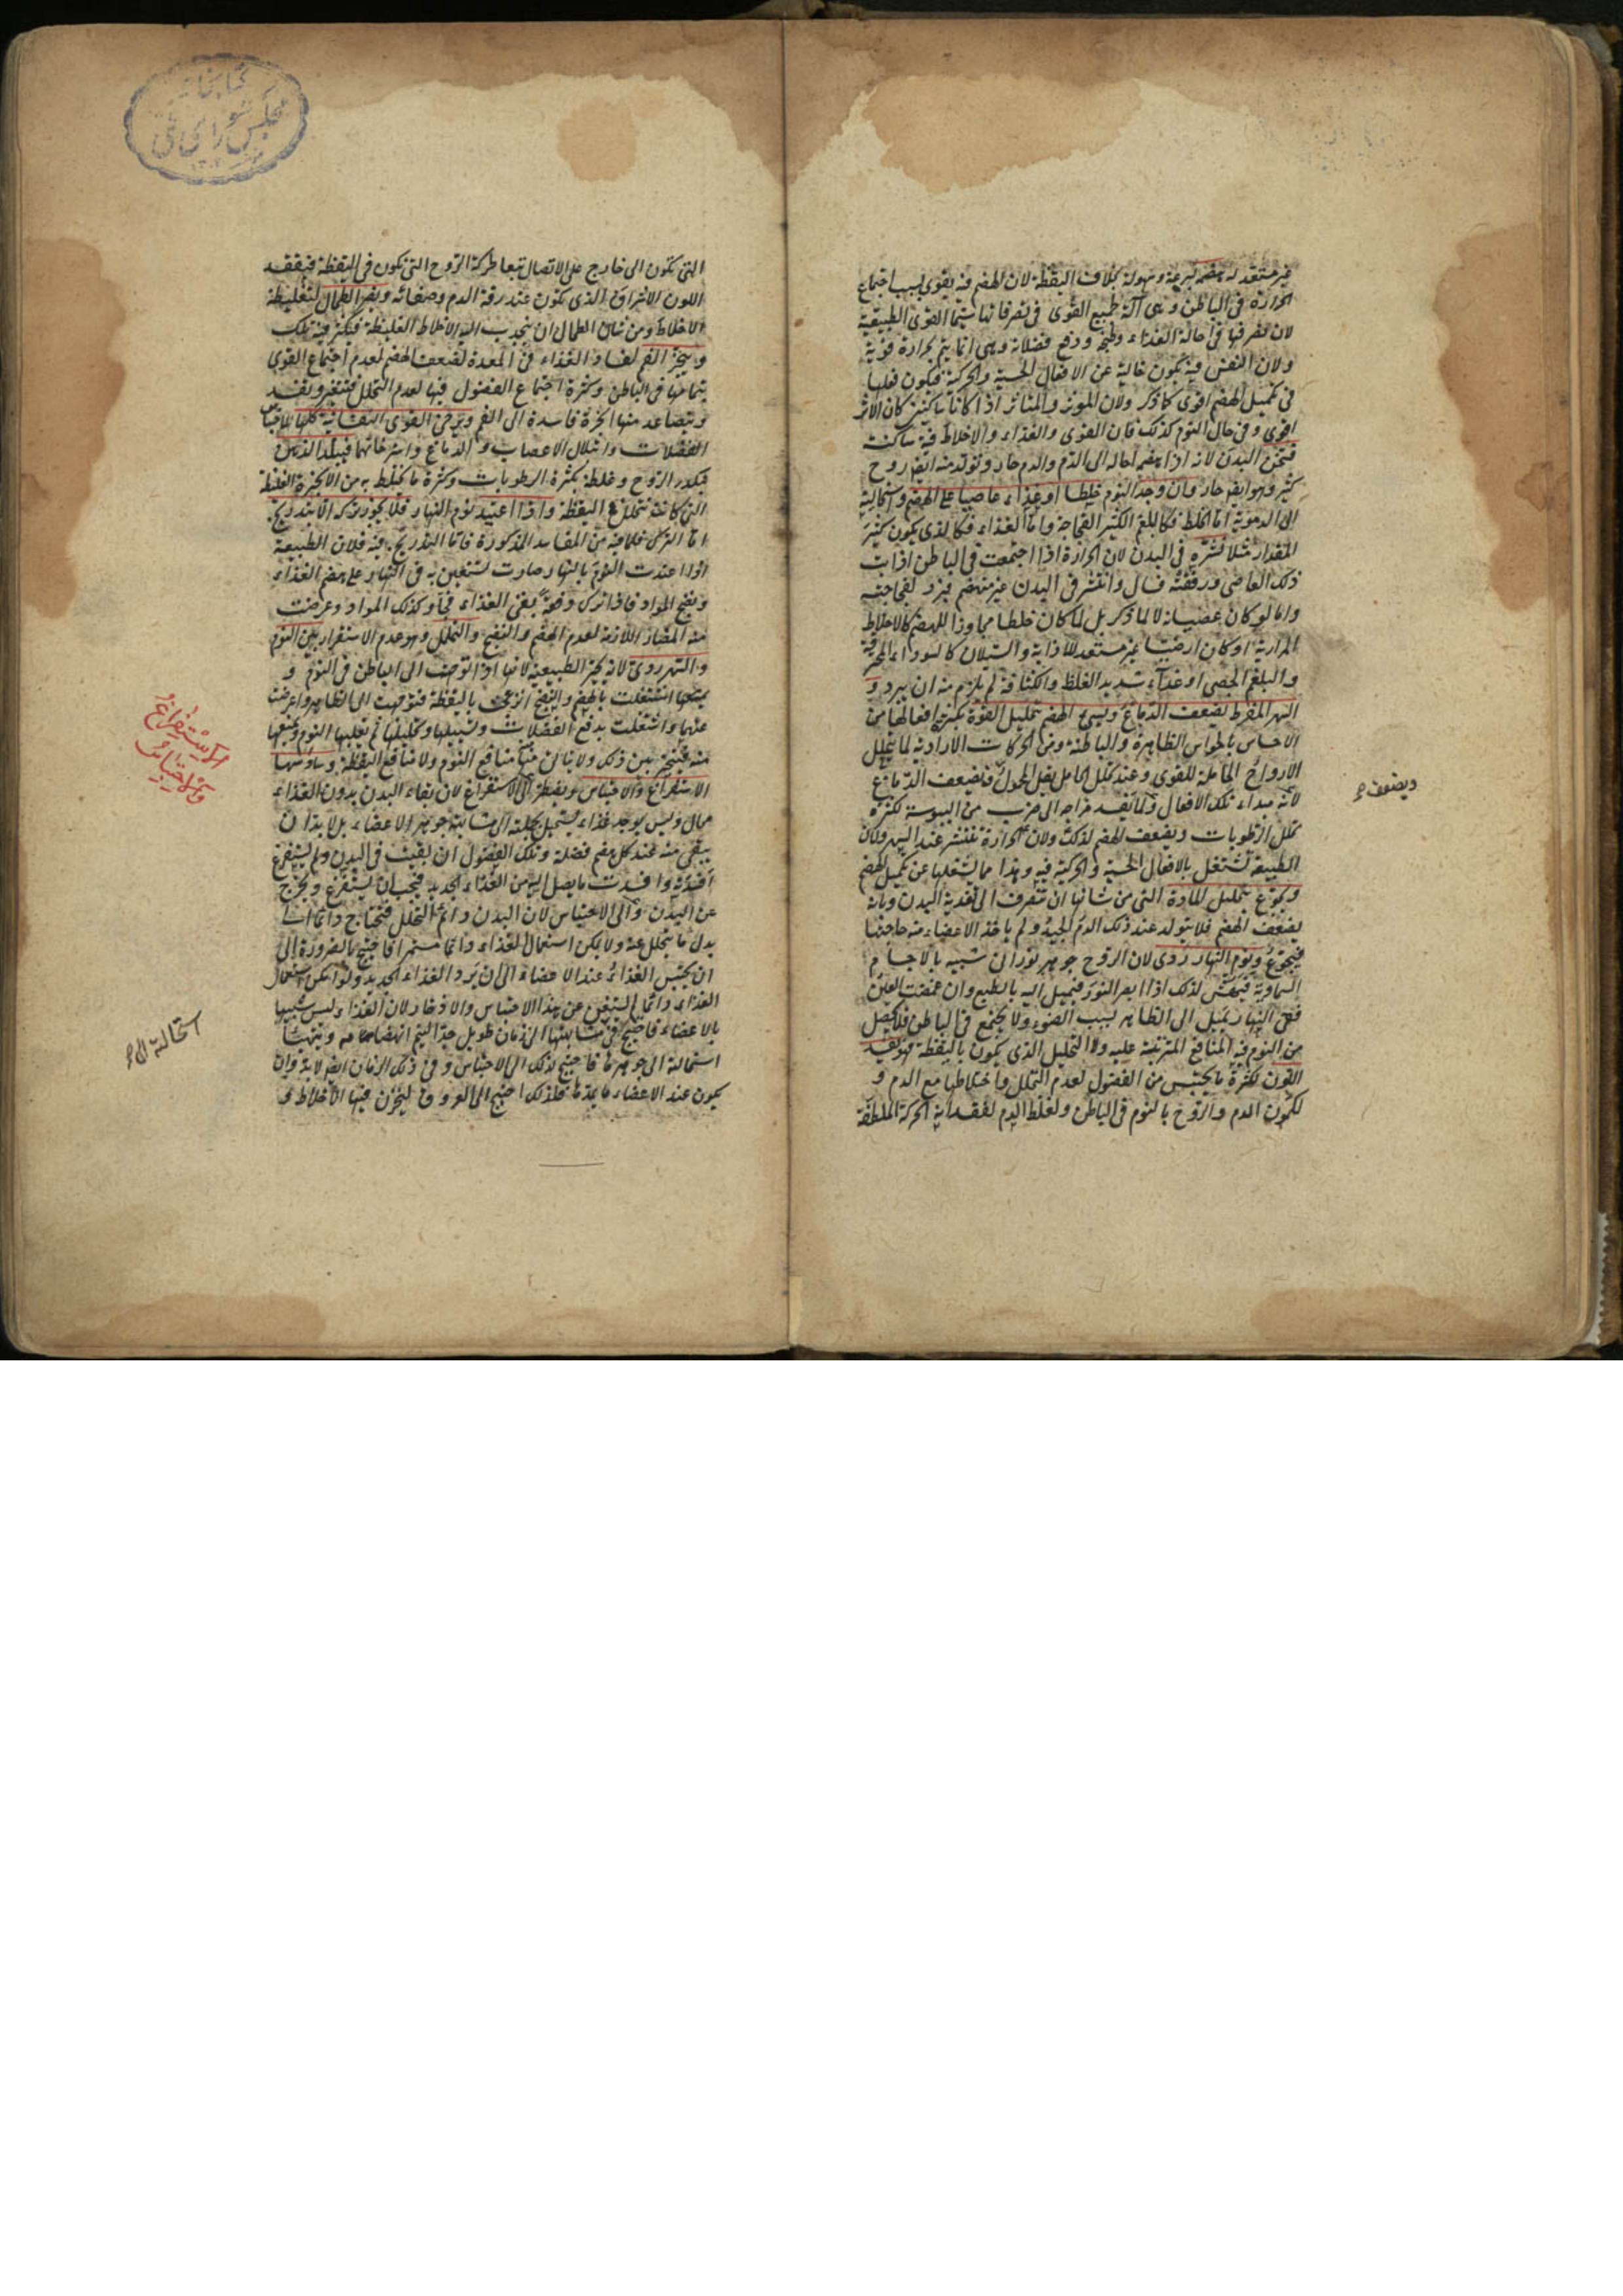 غير مستعد له هضمه بسرعة وسهولة بخلاف اليقظة لان الهضم فيه يقوى بسبب اجتماع
الحرارة فى الباطن وهى آلة لجميع القوى فى تصرفاتها سيما القوى الطبيعية
لان تصرفها فى احالة الغذاء وطبخه ودفع فضلاته وهى انما يتم بحرارة قوية
ولان النفس فيه يكون خالية عن الافعال الحسية والحركية فيكون فعلها
فى تكميل الهضم اقوى كما ذكر ولان الموثر والمتاثر اذا كانا ساكنين كان الاثر
اقوى وفى حال النوم كذلك فان القوى والغذاء والاخلاط فيه ساكنة
فيسخن البدن لانه اذا هضم احاله الى الدم والدم حار وتولد منه ايضا روح
كثير وهو ايضا حار وان وجد النوم خلطا او غذاء عاصيا على الهضم واستحالته
الى الدموية اما الخلط فكالبلغم الكثير الفجاجة واما الغذاء فكالذى يكون كثير
المقدار مثلا نشره فى البدن لان الحرارة اذا اجتمعت فى الباطن اذابت
ذلك العاصى ورققته فسال وانتشر فى البدن غير منهضم فبرد لفجاجته
واما لو كان عصيانه لا لما ذكر بل لما كان خلطا مجاوزا للهضم كالاخلاط
المرارية او كان ارضيا غير مستعد للاذابة والسيلان كالسوداء المحترقة
والبلغم الجصى او غذاء شديد الغلظ والكثافة لم يلزم منه ان يبرد و
السهر المفرط يضعف الدماغ ويسئ الهضم بتحليل القوة بكثرة افعالها من
الاحساس بالحواس الظاهرة والباطنة ومن الحركات الارادية لما يتحلل
الارواح الحاملة للقوى وعند تحلل الحامل يقل المحمول فيضعف الدماغ
لانه مبداء تلك الافعال ولما يفسد مزاجه الى ضرب من اليبوسة لكثرة
تحلل الرطوبات ويضعف الهضم لذلك ولان الحرارة تنتشر عند السهر ولان
الطبيعة تشتغل بالافعال الحسية والحركية فيه وهذا مما يشغلها عن تكميل الهضم
ويجوع بتحليل المادة التى من شانها ان تتصرف الى تغذية البدن وبانه
يضعف الهضم فلا يتولد عند ذلك الدم الجيد ولم ياخذ الاعضاء منه حاجتها
فيجوع ونوم النهار ردى لان الروح جوهر نورانى شبيه بالاجسام
السماوية فيهش لذلك اذا ابصر النور فيميل اليه بالطبع وان غمضت العين
ففى النهار يميل الى الظاهر بسبب الضوء ولا يجتمع فى الباطن فلا يحصل
من النوم فيه المنافع المترتبة عليه ولا التحليل الذى يكون باليقظة فهو يفسد
اللون لكثرة ما يحتبس من الفضول لعدم التحلل واختلاطها مع الدم و
لكون الدم والروح بالنوم فى الباطن ولغلظ الدم لفقدانه الحركة الملطفة
ويضعف
كتابخانه
مجلس شوراى ملى
التى تكون الى خارج على الاتصال تبعا لحركة الروح التى تكون فى اليقظة فيفقد
اللون الاشراق الذى يكون عند رقة الدم وصفائه ويضر الطحال لتغليظه
الاخلاط ومن شان الطحال ان ينجذب اليه الاخلاط الغليظة فيكثر فيه تلك
ويبخر الفم لفساد الغذاء فى المعدة لضعف الهضم لعدم اجتماع القوى
بتمامها فى الباطن وكثرة اجتماع الفضول فيها لعدم التحلل فتتغير ويفسد
ويتصاعد منها ابخرة فاسدة الى الفم ويرخى القوى النفسانية كلها لاحتباس
الفضلات وابتلال الاعصاب والدماغ واسترخائهما فيبلد الذهن
فيكدر الروح وغلظه بكثرة الرطوبات وكثرة ما يختلط به من الابخرة الغليظة
التى كانت تتحلل فى اليقظة واذا اعتيد نوم النهار فلا يجوز تركه الا بتدريج
اما الترك فلما فيه من المفاسد المذكورة واما التدريج فيه فلان الطبيعة
اذا اعتدت النوم بالنهار صارت تستعين به فى النهار على هضم الغذاء
ونضج المواد فاذا ترك دفعة بقى الغذاء فجا وكذلك المواد وعرضت
منه المضار اللازمة لعدم الهضم والنضج والتحليل وهو عدم الاستقرار بين النوم
والسهر ردى لانه يحير الطبيعة لانها اذا توجهت الى الباطن فى النوم و
اشتغلت بالهضم والنضج ازعجت باليقظة فتوجهت الى الظاهر واعرضت
عنهما واشتغلت بدفع الفضلات وتسييلها وتحليلها ثم يغلبها النوم ويمنعها
منه فيتحير بين ذلك ولا ينال منها منافع النوم ولا منافع اليقظة وسادسها
الاستفراغ والاحتباس ويضطر الى الاستفراغ لان بقاء البدن بدون الغذاء
محال وليس يوجد غذاء يستحيل بكليته الى مشابهة جوهر الاعضاء بل لا بد ان
يبقى منه عند كل هضم فضلة وتلك الفضول ان بقيت فى البدن ولم يستفرغ
افسدته وافسدت ما يصل اليه من الغذاء الجديد فيجب ان يستفرغ ويخرج
عن البدن والى الاحتباس لان البدن دائم التحلل فيحتاج دائما الى
بدل ما يتحلل عنه ولا يمكن استعمال الغذاء دائما مستمرا فاحتيج بالضرورة الى
ان يحتبس الغذاء عند الاعضاء الى ان يرد الغذاء الجديد ولو امكن استعمال
الغذاء دائما لم يستغن عن هذا الاحتباس والادخار لان الغذاء ليس شبيها
بالاعضاء فاحتيج فى مشابهتها الى زمان طويل حتى ليتم انهضامه فيه ويتهيأ
استحالة الى جوهرها فاحتيج لذلك الى الاحتباس وفى ذلك الزمان ايضا لا بد وان
يكون عند الاعضاء ما يغذوها فلذلك احتيج الى العروق ليخزن فيها الاخلاط و
الاستفراغ
والاحتباس
استحالته الى